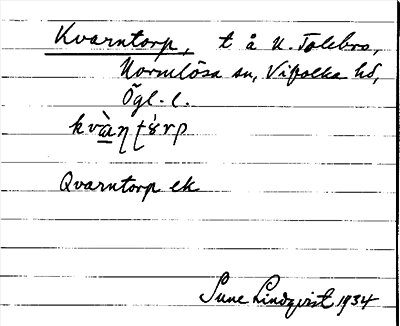 Kvarntorp, t å U. Tolebro,
Normlösa sn, Vifolka hd,
Ögl. l.
kvàɳʈórp
Qvarntorp ek
Sune Lindqvist 1934